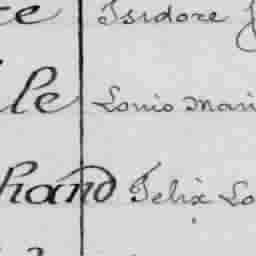 te Isidore J
le Louis Mari
hand Félix Lo